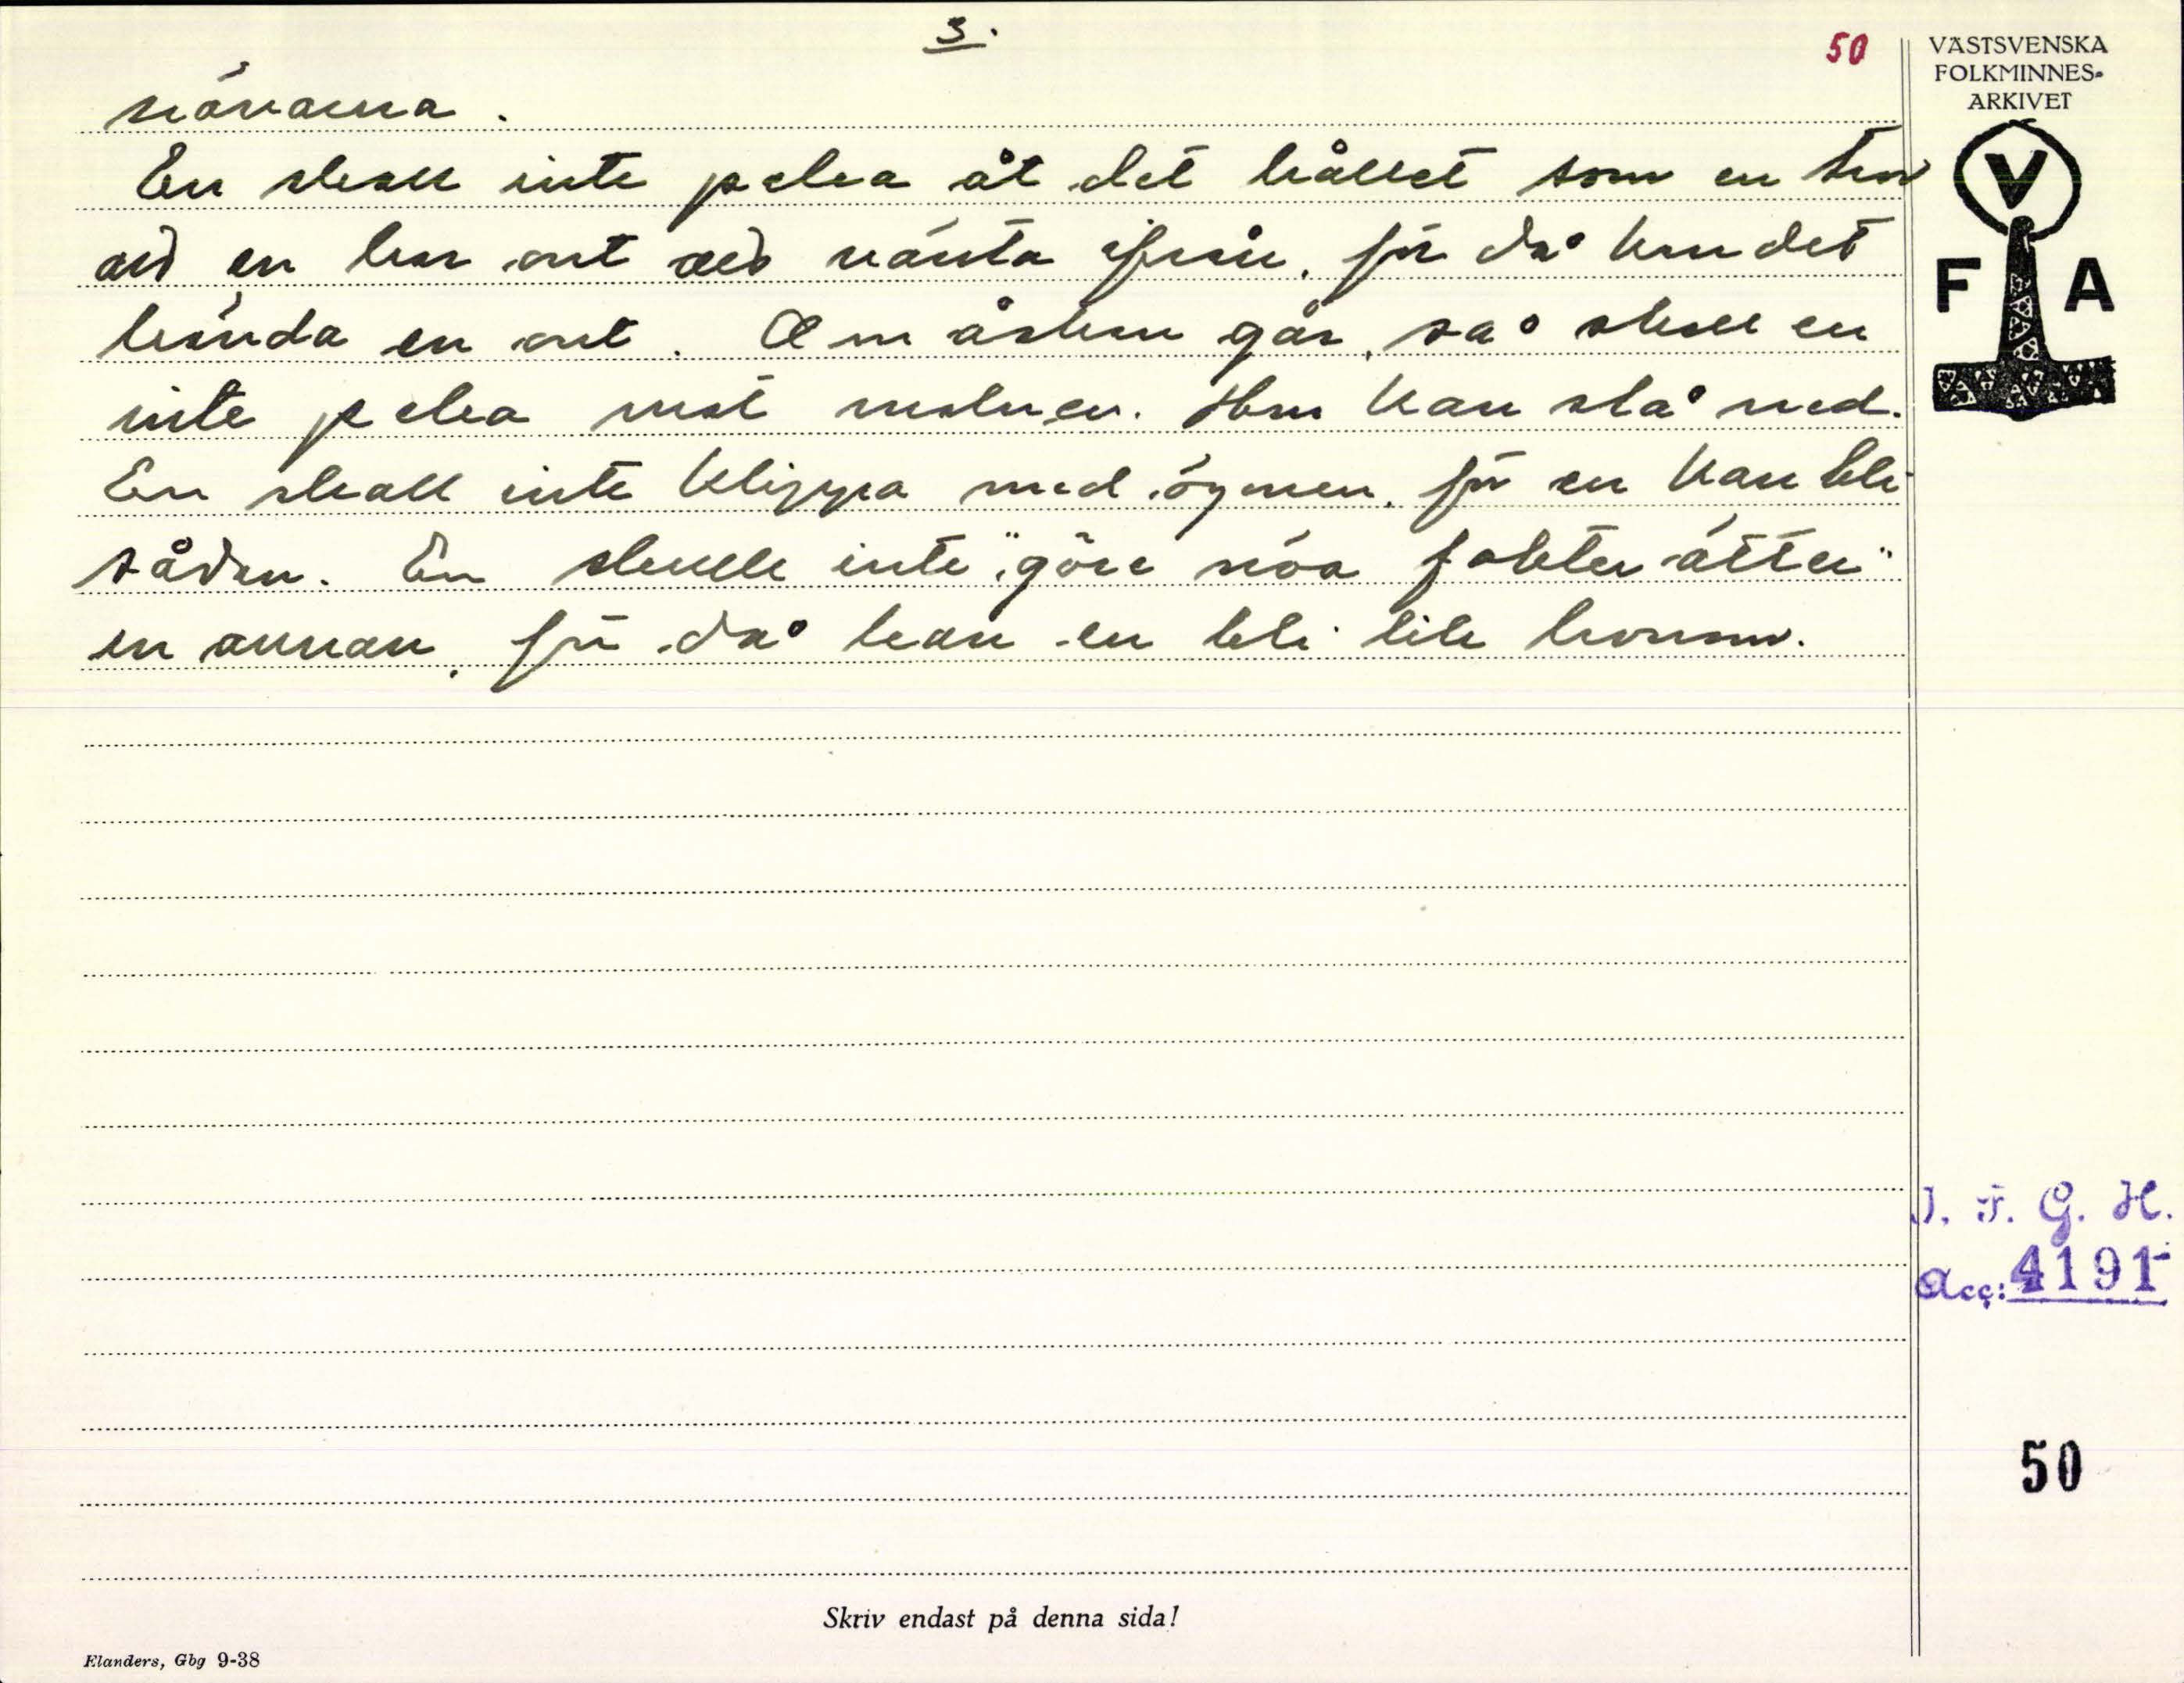 3.
50
VÄSTSVENSKA
FOLKMINNES-
ARKIVET
V
F A
nävarna.
En skall inte peka åt det hållet som en tror
att en har ont att vänta ifrån, för då kan det
hända en ont. Om åskan går, så skall en
inte peka mot molnen. Hon kan slå ned.
En skall inte klippa med ögonen, för en kan bli
sådan. En skulle inte "göre nöa fakter ätter"
en annan, för då kan en bli lik honom.
I. F. G. H.
Acc: 4191
50
Skriv endast på denna sida!
Elanders, Gbg 9-38